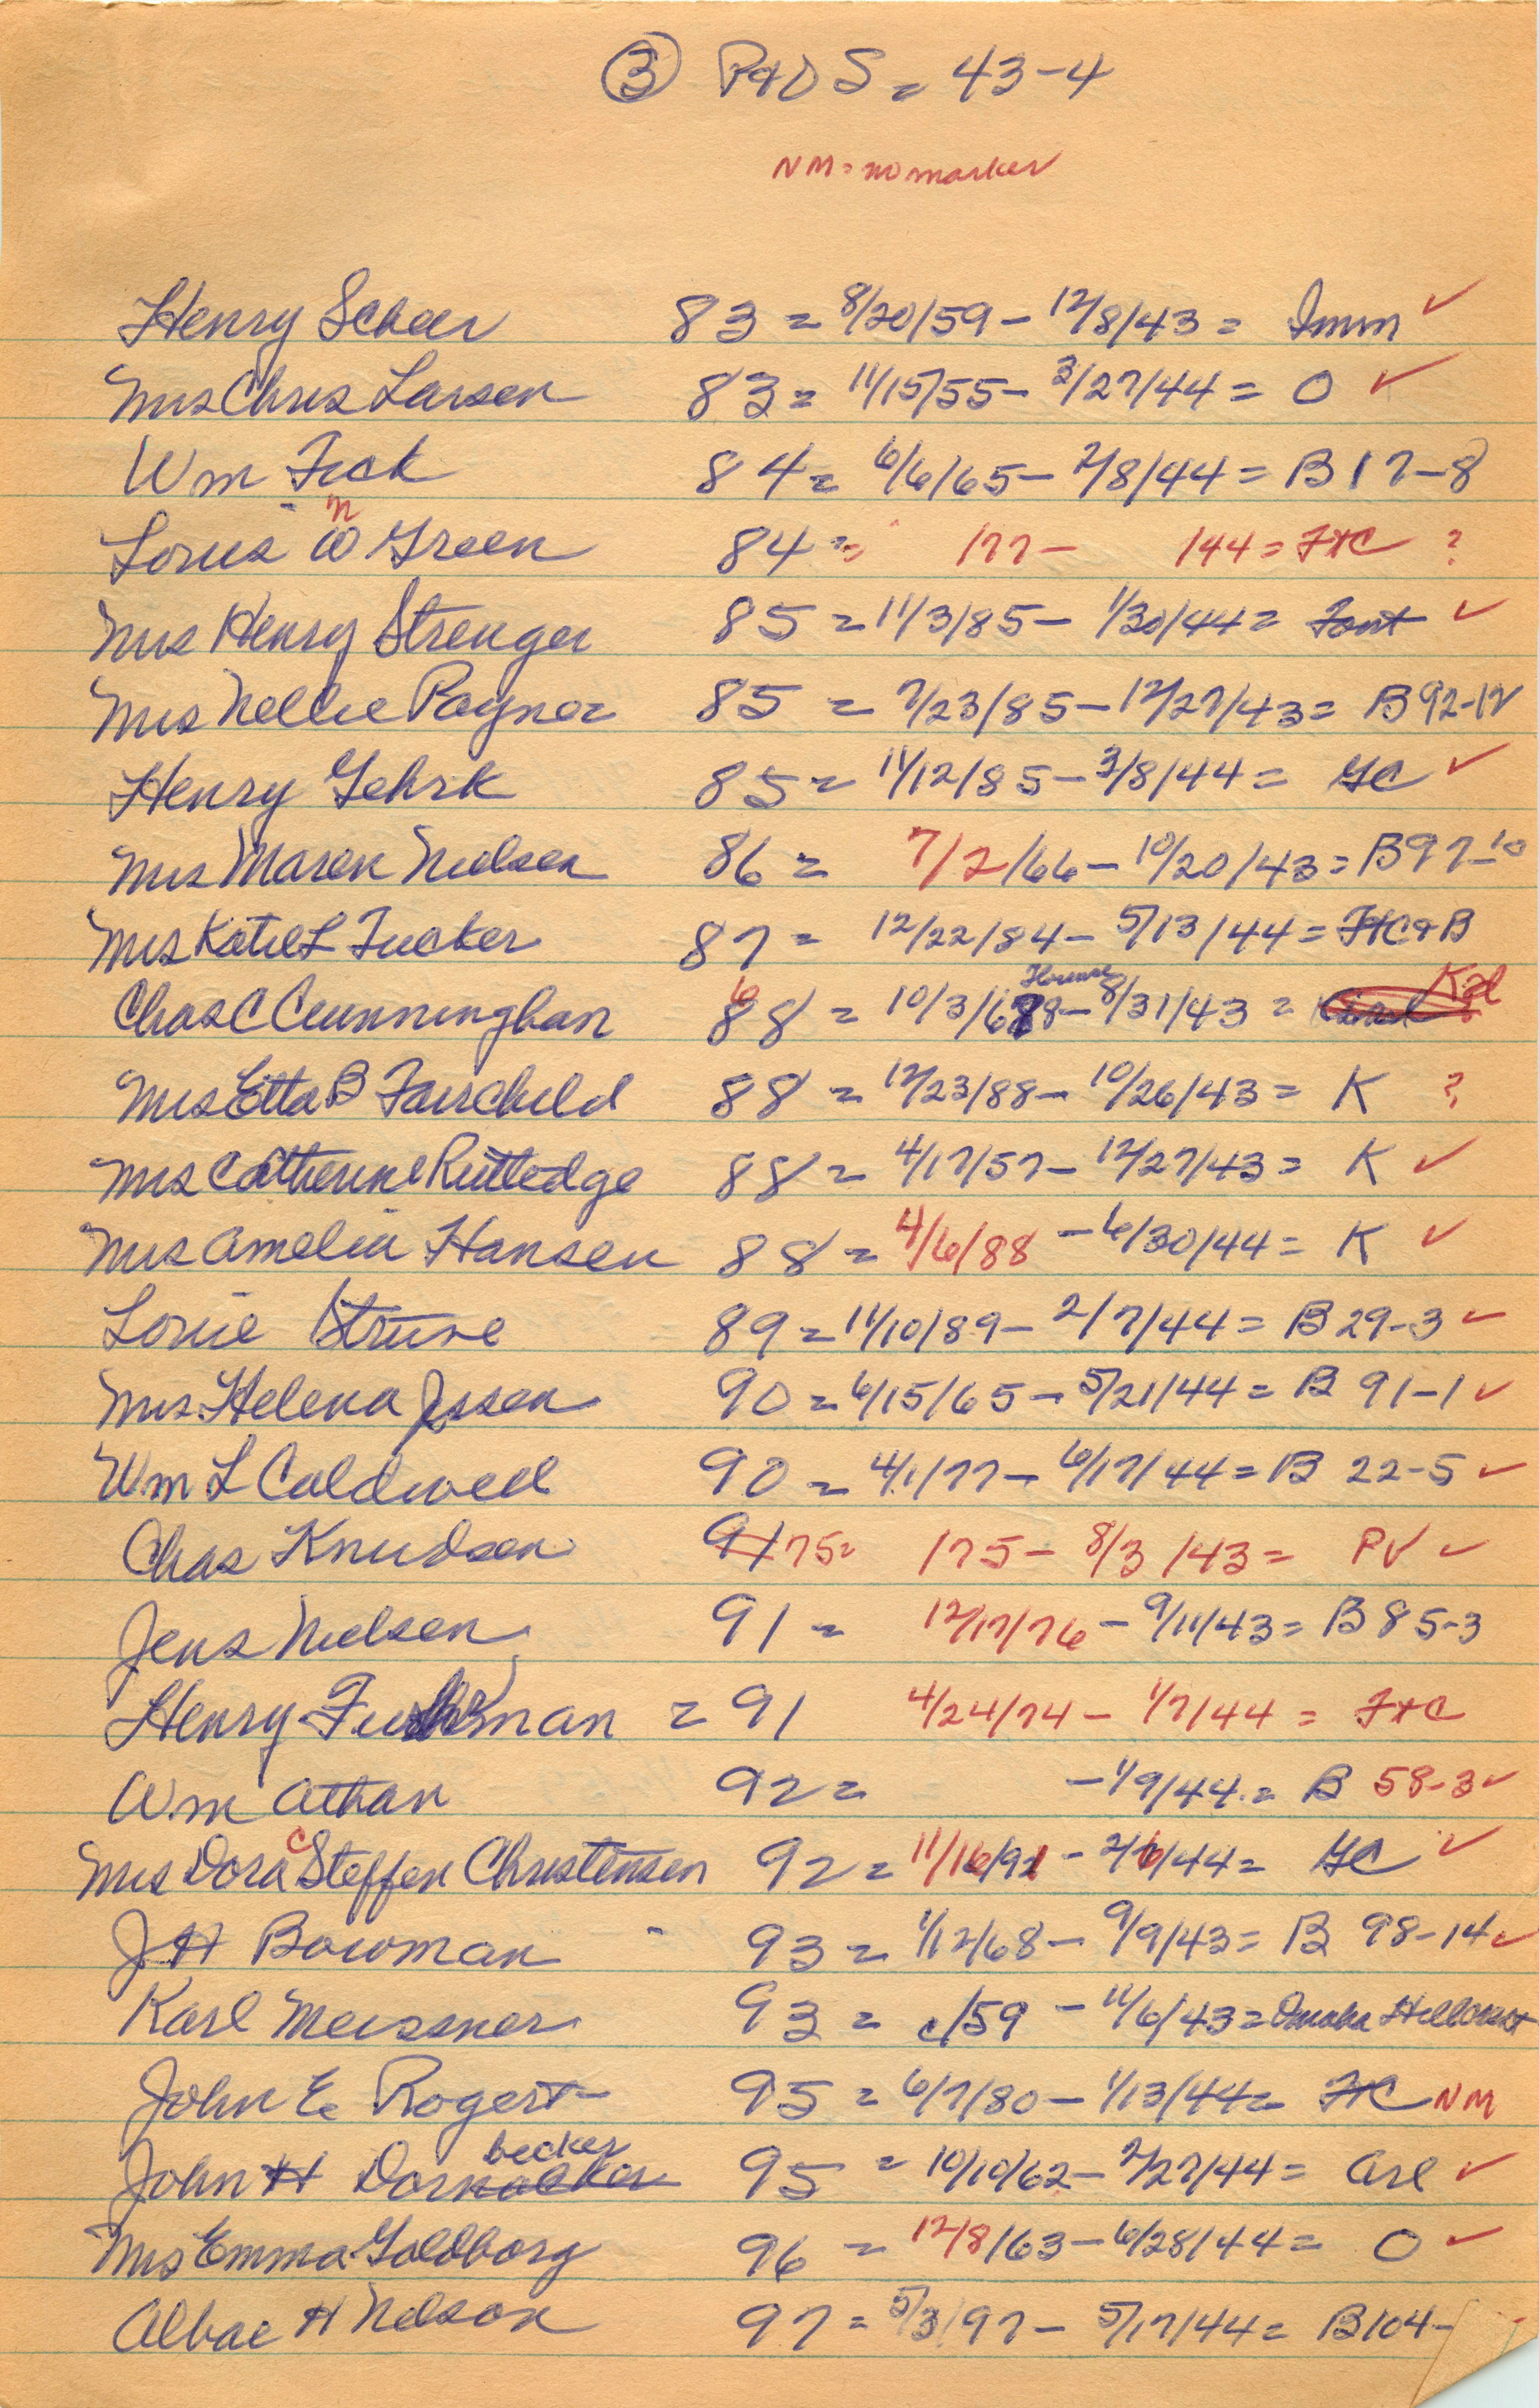 ③ P&DS = 43-4
NM = no marker
Henry Scheer 83 = 8/20/59 - 12/8/43 = Imm ✓
Mrs Chris Larsen 83 = 11/15/55 - 3/27/44 = O ✓
Wm Fick 84 = 6/6/65 - 2/8/44 = B 17-8
n
Louis W Green 84 = /77 - /44 = F+C ?
Mrs Henry Strenger 85 = 11/3/85 - 1/30/44 = Font ✓
Mrs Nellie Paynor 85 = 7/23/85 - 12/27/43 = B 92-12
Henry Gehrk 85 = 11/12/85 - 3/8/44 = GC ✓
Mrs Maren Nielsen 86 = 7/2/66 - 10/20/43 = B 97-10
Mrs Katie L Tucker 87 = 12/22/84 - 5/13/44 = F+C+B
Chas C Cunninghan 88 = 10/3/68 - 8/31/43 = Kal
Mrs Etta B Fairchild 88 = 12/23/88 - 10/26/43 = K ?
Mrs Catherine Rutledge 88 = 4/17/57 - 12/27/43 = K ✓
Mrs Amelia Hansen 88 = 4/6/88 - 6/30/44 = K ✓
Louie Struve 89 = 11/10/89 - 2/7/44 = B 29-3 ✓
Mrs. Helena Jssen 90 = 6/15/65 - 5/21/44 = B 91-1 ✓
Wm L Caldwell 90 = 4/1/77 - 6/17/44 = B 22-5 ✓
Chas Knudsen 91 75 = /75 - 8/3/43 = PV ✓
Jens Nielsen 91 = 12/17/76 - 9/11/43 = B 85-3
Henry = 91 4/24/74 - 1/7/44 = F+C
Wm Athan 92 = - 1/9/44 = B 58-3 ✓
Mrs Dora C Steffen Christensen 92 = 11/16/91 - 2/6/44 = GC ✓
JH Bowman 93 = 1/12/68 - 9/9/43 = B 98-14 ✓
Karl Meissner 93 = c/59 - 11/6/43 = Omaha Hillcrest
John E Rogert 95 = 6/7/80 - 1/13/44 = FC NM
becker
John H Dornacker 95 = 10/10/62 - 2/27/44 = Arl ✓
Mrs Emma Goldborg 96 = 12/8/63 - 6/28/44 = O ✓
Albae H Nelson 97 = 5/3/97 - 5/17/44 = B 104-